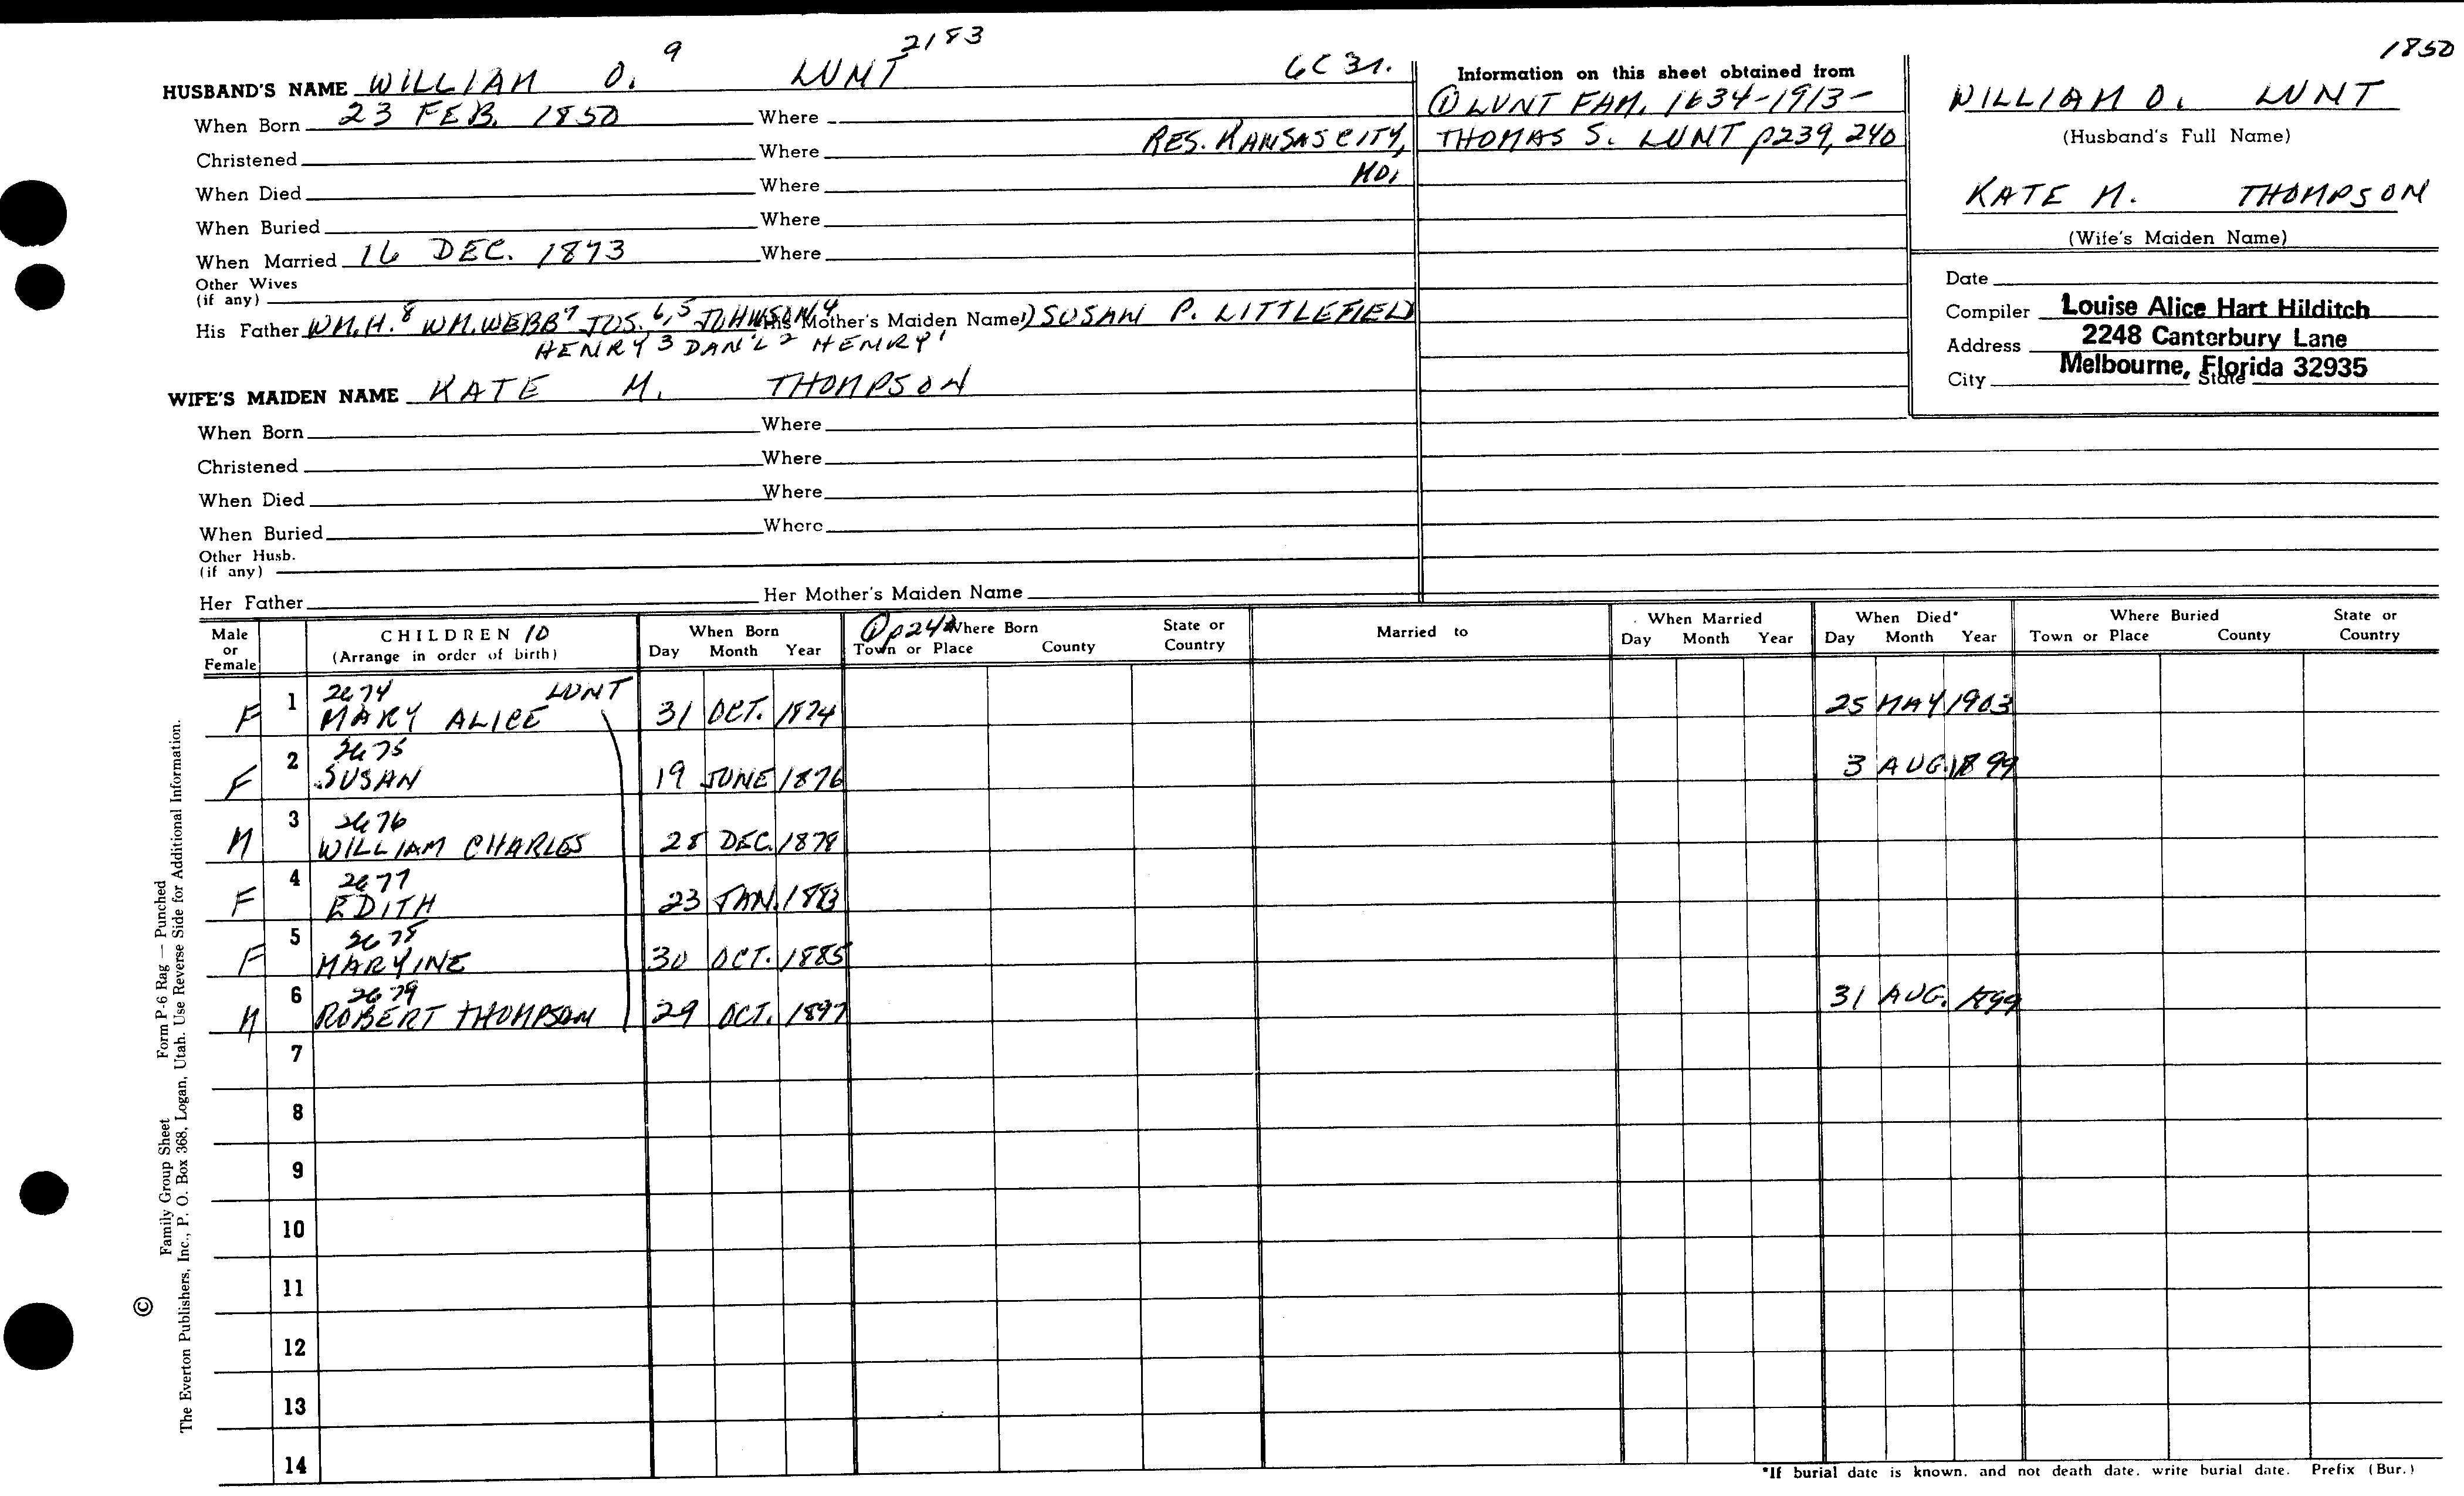 1850
HUSBAND'S NAME WILLIAM O. 9 LUNT 2183 6C 3
When Born 23 FEB. 1850 Where
Christened Where RES. KANSAS CITY,
When Died Where MO.
When Buried Where
When Married 16 DEC. 1873 Where
Other Wives
(if any)
His Father WM. H.8 WM. WEBB7 JOS. 6,5 JOHNSON4 His Mother's Maiden Name 1) SUSAN P. LITTLEFIELD
HENRY3 DAN'L2 HENRY1
WIFE'S MAIDEN NAME KATE M. THOMPSON
When Born Where
Christened Where
When Died Where
When Buried Where
Other Husb.
(if any)
Her Father Her Mother's Maiden Name
Information on this sheet obtained from
① LUNT FAM. 1634-1913-
THOMAS S. LUNT p239, 240
WILLIAM O. LUNT
(Husband's Full Name)
KATE M. THOMPSON
(Wife's Maiden Name)
Date
Compiler Louise Alice Hart Hilditch
Address 2248 Canterbury Lane
City Melbourne, Florida 32935 State
Male or Female CHILDREN 10 (Arrange in order of birth) When Born Day Month Year ① p240 Where Born Town or Place County State or Country Married to When Married Day Month Year When Died* Day Month Year Where Buried Town or Place County State or Country
F 1 2674 MARY ALICE LUNT 31 OCT. 1874 25 MAY 1903
F 2 2675 SUSAN 19 JUNE 1876 3 AUG. 1899
M 3 2676 WILLIAM CHARLES 28 DEC. 1878
F 4 2677 EDITH 23 JAN. 1883
F 5 2678 MARYINE 30 OCT. 1885
M 6 2679 ROBERT THOMPSON 29 OCT. 1897 31 AUG. 1899
7
8
9
10
11
12
13
14
*If burial date is known, and not death date, write burial date. Prefix (Bur.)
© Family Group Sheet Form P-6 Rag — Punched
The Everton Publishers, Inc., P. O. Box 368, Logan, Utah. Use Reverse Side for Additional Information.